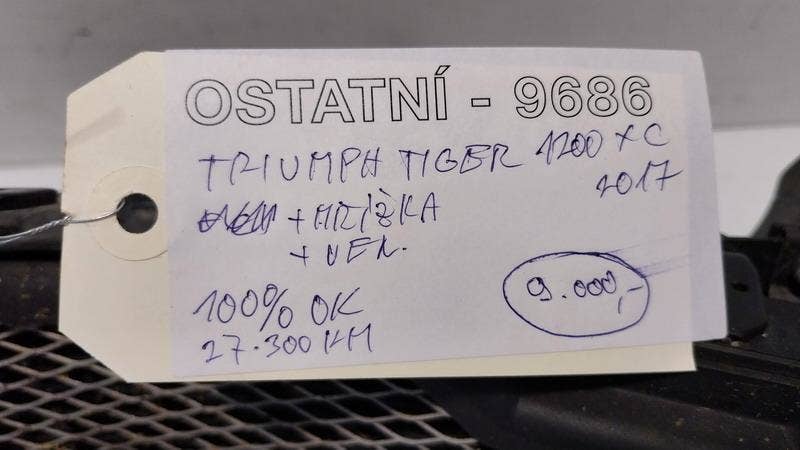 OSTATNÍ - 9686
TRIUMPH TIGER 1200 XC
2017
+ MŘÍŽKA
+ VEN.
100% OK
9.000,-
27.300 KM